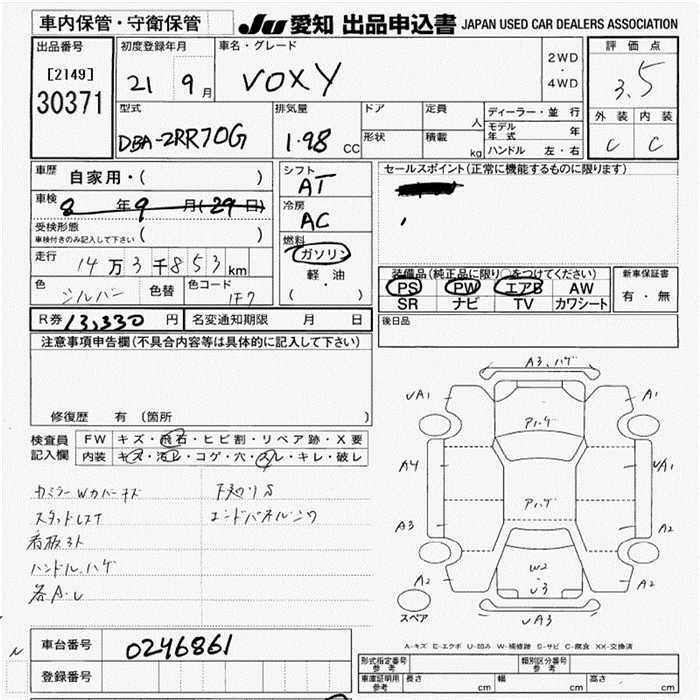 車内保管・守衛保管
JU 愛知 出品申込書 JAPAN USED CAR DEALERS ASSOCIATION
出品番号
[2149]
30371
初度登録年月
21 9月
車名・グレード
VOXY
2WD
・
4WD
評価点
3.5
外装 内装
C C
型式
DBA-ZRR70G
排気量
1.98 CC
ドア
形状
定員 人
積載 kg
ディーラー・並行
モデル年式 年
ハンドル 左・右
車歴 自家用・( )
車検 8年9月(29日)
受検形態
車検付きのみ記入して下さい ( )
走行 14万3千853km
色 シルバー 色替 色コード 1F7
シフト
AT
冷房
AC
燃料
ガソリン
軽・油
( )
セールスポイント(正常に機能するものに限ります)
装備品(純正品に限り○をつけてください)
PS PW エアB AW
SR ナビ TV カワシート
新車保証書
有・無
R券 13,330円 名変通知期限 月 日
後日品
注意事項申告欄(不具合内容等は具体的に記入して下さい)
修復歴 有(箇所 )
検査員記入欄
FW キズ・飛石・ヒビ割・リペア跡・X要
内装 キズ・汚レ・コゲ・穴・スレ・キレ・破レ
カミラーWカバーキズ
スタッドレス
看板ヌト
ハンドル、ハゲ
各A・U
下廻りS
エンドパネルシワ
A3、ハゲ
UA1
A1
アハ・ゲ
A4
UA1
アハ・ゲ
A3
A2
W2
・
U3
A2
A2
UA3
スペア
A-キズ E-エクボ U-凹み W-補修跡 S-サビ C-腐食 XX-交換済
車台番号 0246861
登録番号
形式指定番号 参考
類別区分番号 参考
車庫証明用 参考 長さ cm 幅 cm 高さ cm